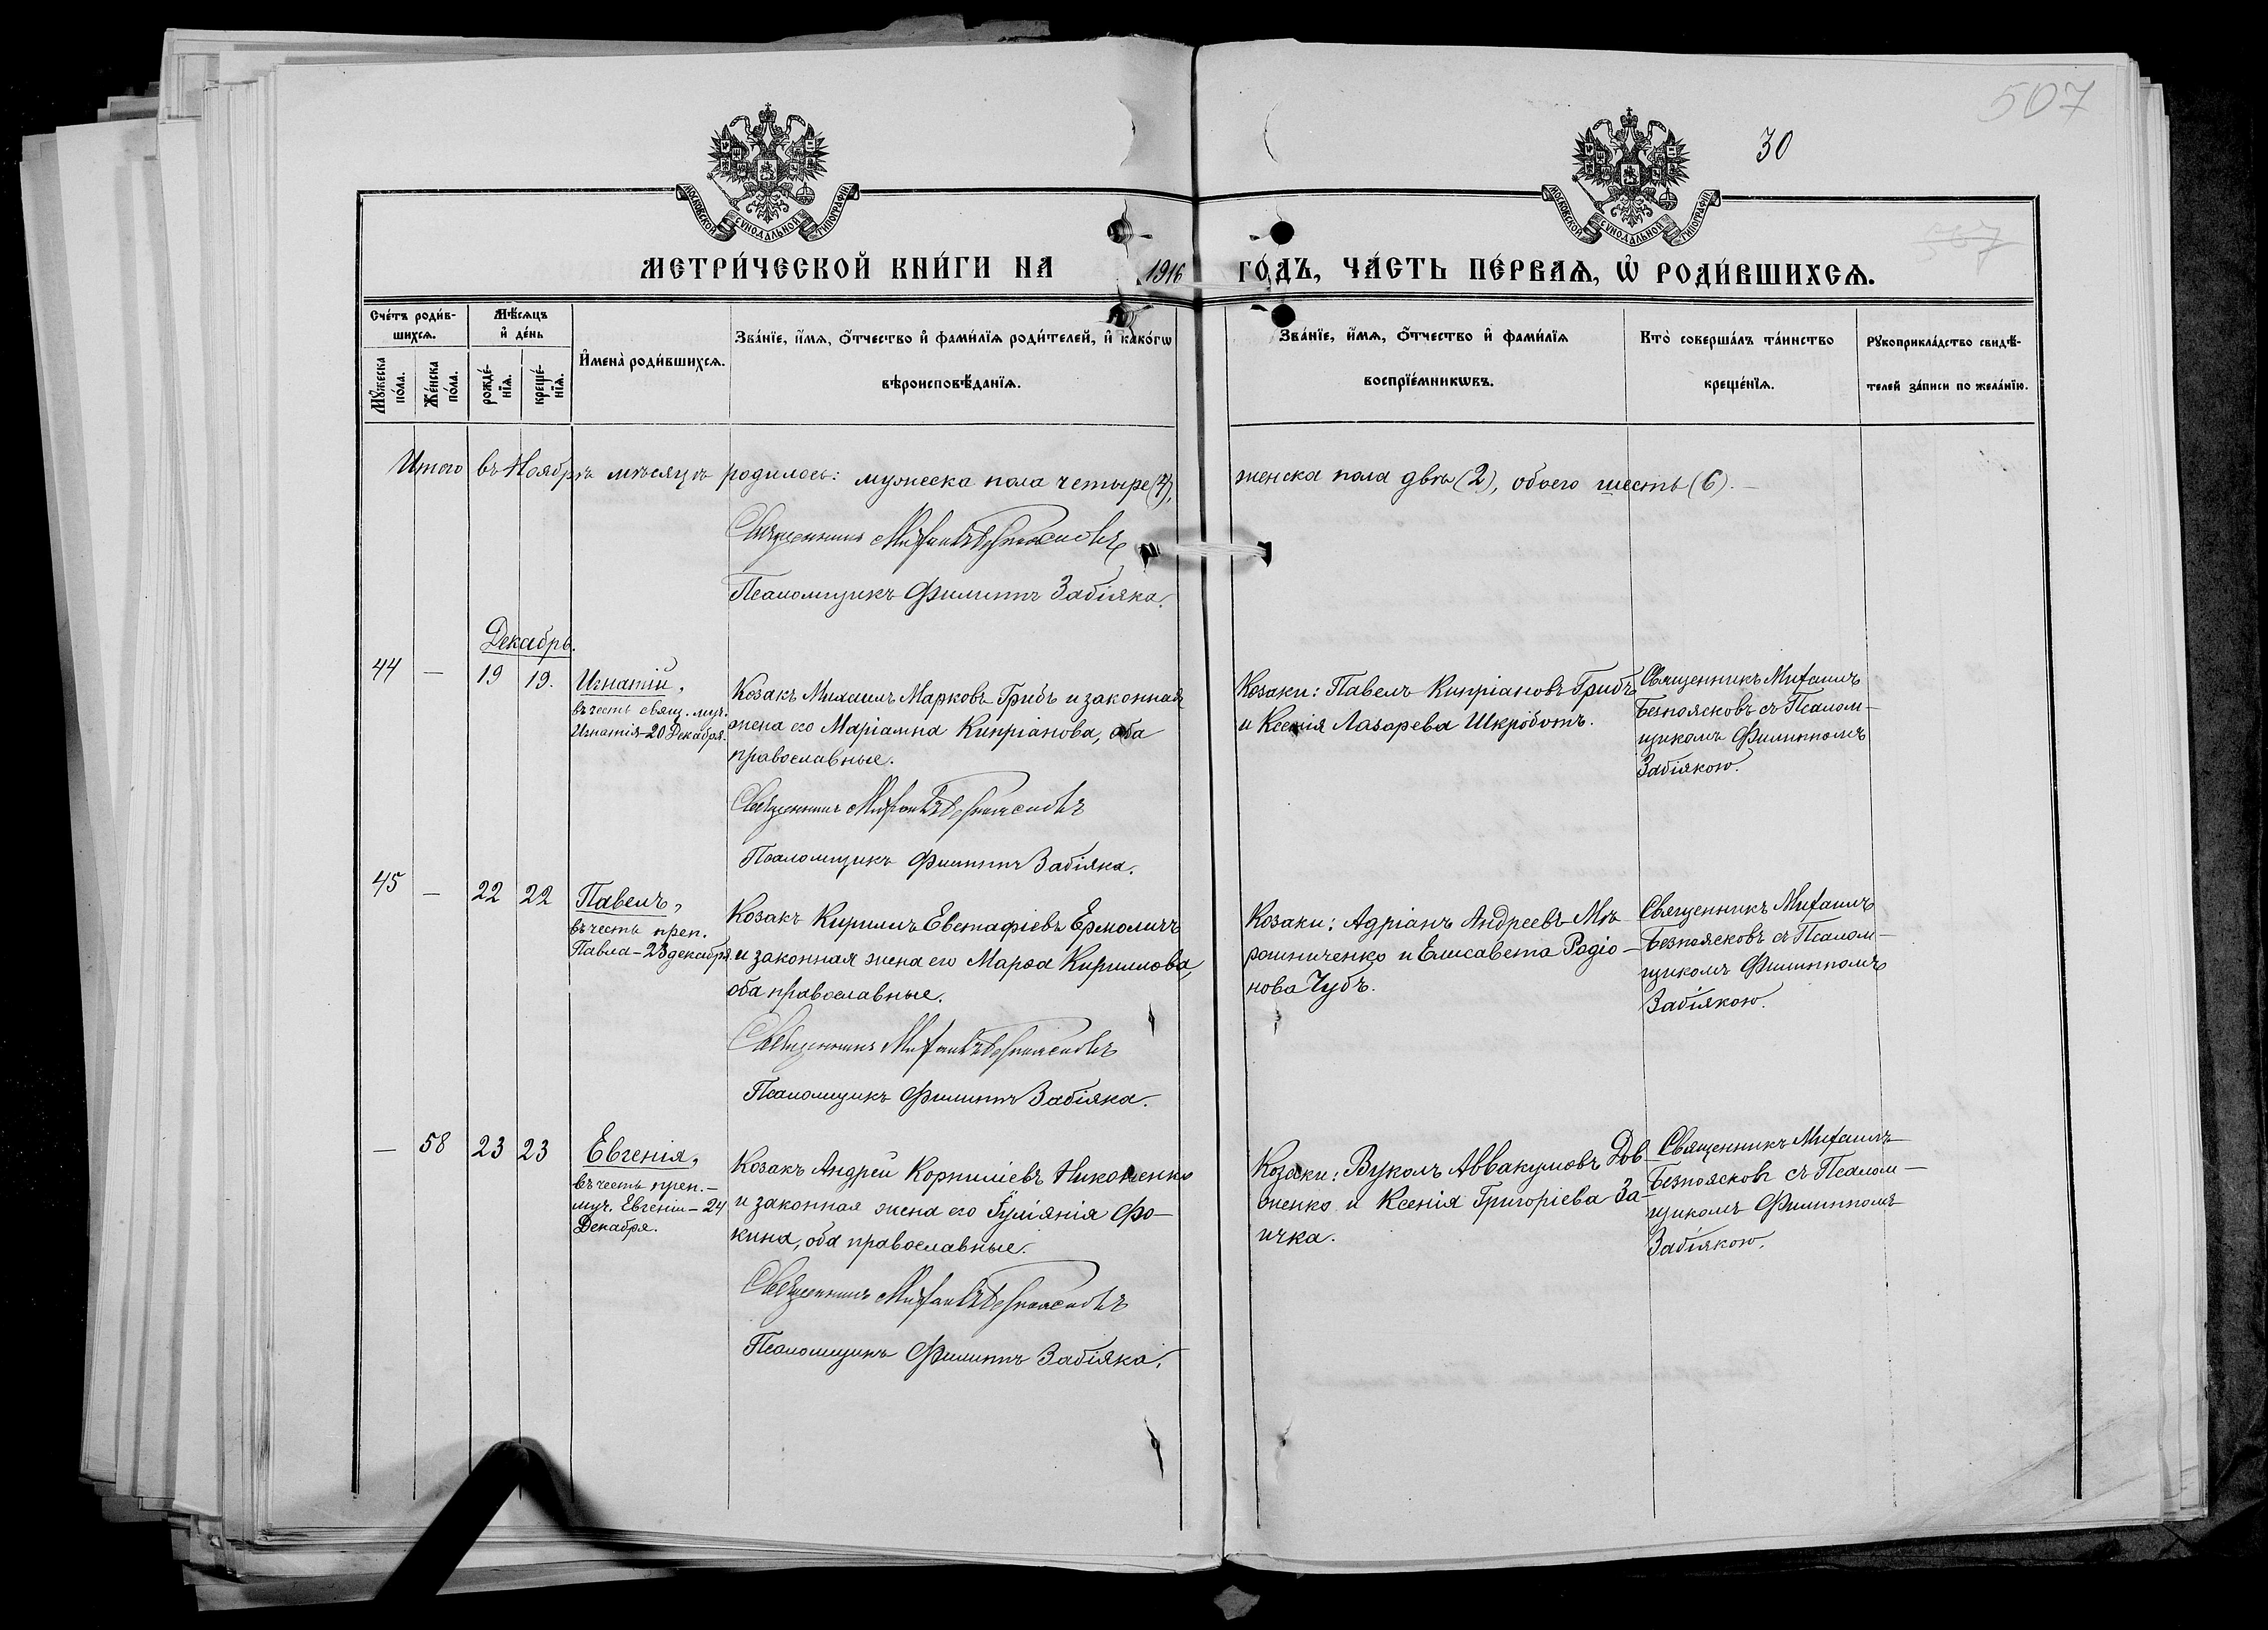 507
30
МОСКОВСКОЙ СѴНОДАЛЬНОЙ ТИПОГРАФІИ
МОСКОВСКОЙ СѴНОДАЛЬНОЙ ТИПОГРАФІИ
567
МЕТРИ́ЧЕСКОЙ КНИ́ГИ НА 1916 ГО́ДЪ, ЧА́СТЬ ПЕ́РВАѦ, Ѡ҆ РОДИ́ВШИХСѦ.
Сче́тъ роди́в-
шихсѧ.
Мꙋ́жеска
по́ла.
Же́нска
по́ла.
Мѣ́сѧцъ
и҆ де́нь
рожде́-
нїѧ.
креще́-
нїѧ.
И҆мена̀ роди́вшихсѧ.
Зва́нїе, и҆́мѧ, ѻ҆́тчество и҆ фами́лїѧ роди́телей, и҆ како́гѡ
вѣроисповѣ́данїѧ.
Зва́нїе, и҆́мѧ, ѻ҆́тчество и҆ фами́лїѧ
воспрїе́мникѡвъ.
Кто̀ соверша́лъ та́инство
креще́нїѧ.
Рꙋкоприкла́дство свидѣ́-
телей за́писи по жела́нїю.
Итого въ Ноябрѣ мѣсяцѣ родилось: мужеска пола четыре (4),
женска пола два (2), обоего шесть (6). —
Священникъ Михаилъ Безпоясковъ
Псаломщикъ Филиппъ Забіяка.
Декабрь.
44 — 19 19.
Игнатій,
въ честь свящ. муч.
Игнатія–20 Декабря.
Козакъ Михаилъ Марковъ Грибъ и законная
жена его Маріамна Кипріанова, оба
православные.
Священникъ Михаилъ Безпоясковъ
Псаломщикъ Филиппъ Забіяка.
Козаки: Павелъ Кипріановъ Грибъ
и Ксенія Лазарева Шкроботъ.
Священникъ Михаилъ
Безпоясковъ съ Псалом-
щикомъ Филиппомъ
Забіякою.
45 — 22 22
Павелъ,
въ честь преп.
Павла–23 декабря.
Козакъ Кириллъ Евстафіевъ Ермоличъ
и законная жена его Марѳа Кириллова,
оба православные.
Священникъ Михаилъ Безпоясковъ
Псаломщикъ Филиппъ Забіяка.
Козаки: Адріанъ Андреевъ Мѣ-
рошниченко и Елисавета Родіо-
нова Чубъ.
Священникъ Михаилъ
Безпоясковъ съ Псалом-
щикомъ Филиппомъ
Забіякою.
— 58 23 23
Евгенія,
въ честь преп.-
муч. Евгеніи–24
Декабря.
Козакъ Андрей Корниліевъ Никоненко
и законная жена его Гуліянія Фо-
кина, оба православные.
Священникъ Михаилъ Безпоясковъ
Псаломщикъ Филиппъ Забіяка.
Козаки: Вуколъ Аввакумовъ Дов-
женко и Ксенія Григоріева За-
ичка.
Священникъ Михаилъ
Безпоясковъ съ Псалом-
щикомъ Филиппомъ
Забіякою.